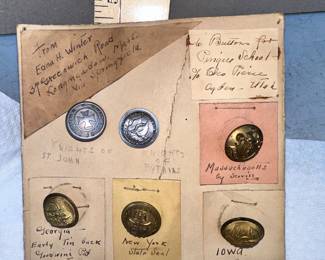 From
Edna H. Winter
37 Greenwich Road
Longmeadow, Mass.
Via Springfield
6 Buttons for
School
To Geo
Ogden - Utah
KNIGHTS OF
ST. JOHN
KNIGHTS
OF
PYTHIAS
Massachusetts
by Scovill
Georgia
Early Tin back
New York
State Seal
IOWA